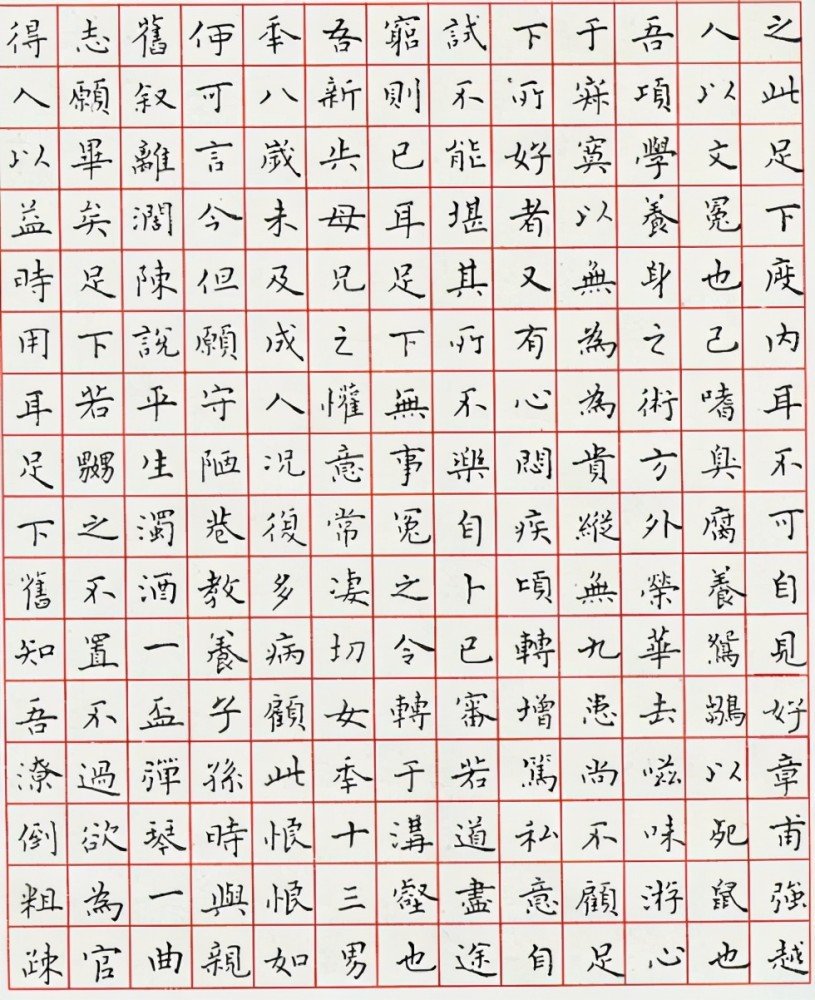 之此足下度内耳不可自見好章甫強越
人以文冕也己嗜臭腐養鴛鶵以死鼠也
吾項學養身之術方外榮華去滋味游心
于寂寞以無為為貴縱無九患尚不顧足
下所好者又有心悶疾頃轉增篤私意自
試不能堪其所不樂自卜已審若道盡途
窮則已耳足下無事冤之令轉于溝壑也
吾新失母兄之懽意常凄切女年十三男
年八歲未及成人況復多病顧此悢悢如
何可言今但願守陋巷教養子孫時與親
舊叙離濶陳說平生濁酒一盃彈琴一曲
志願畢矣足下若嬲之不置不過欲為官
得人以益時用耳足下舊知吾潦倒粗疎